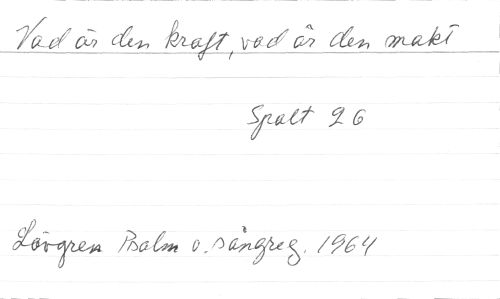 Vad är den kraft, vad är den makt
Spalt 26
Lövgren Psalm o. sångreg. 1964